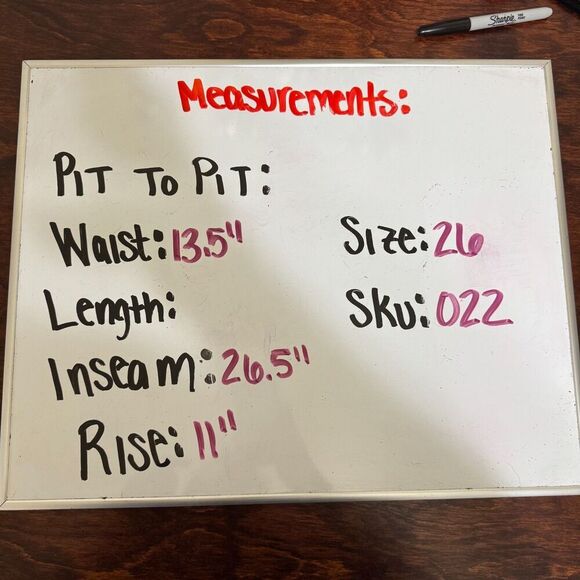 Sharpie
Measurements:
PIT TO PIT:
Waist: 13.5"
Size: 26
Length:
Sku: 022
Inseam: 26.5"
Rise: 11"